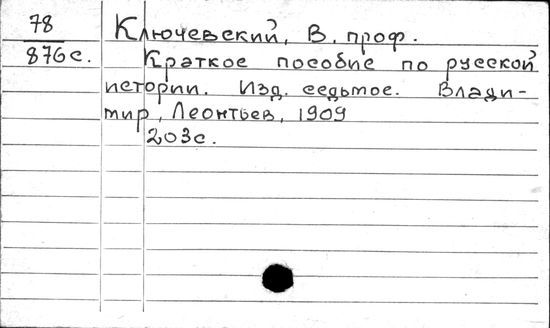 78
876с.
Ключевский, В. проф.
Краткое пособие по русской
истории. Изд. седьмое. Влади-
мир, Леонтьев, 1909
203с.